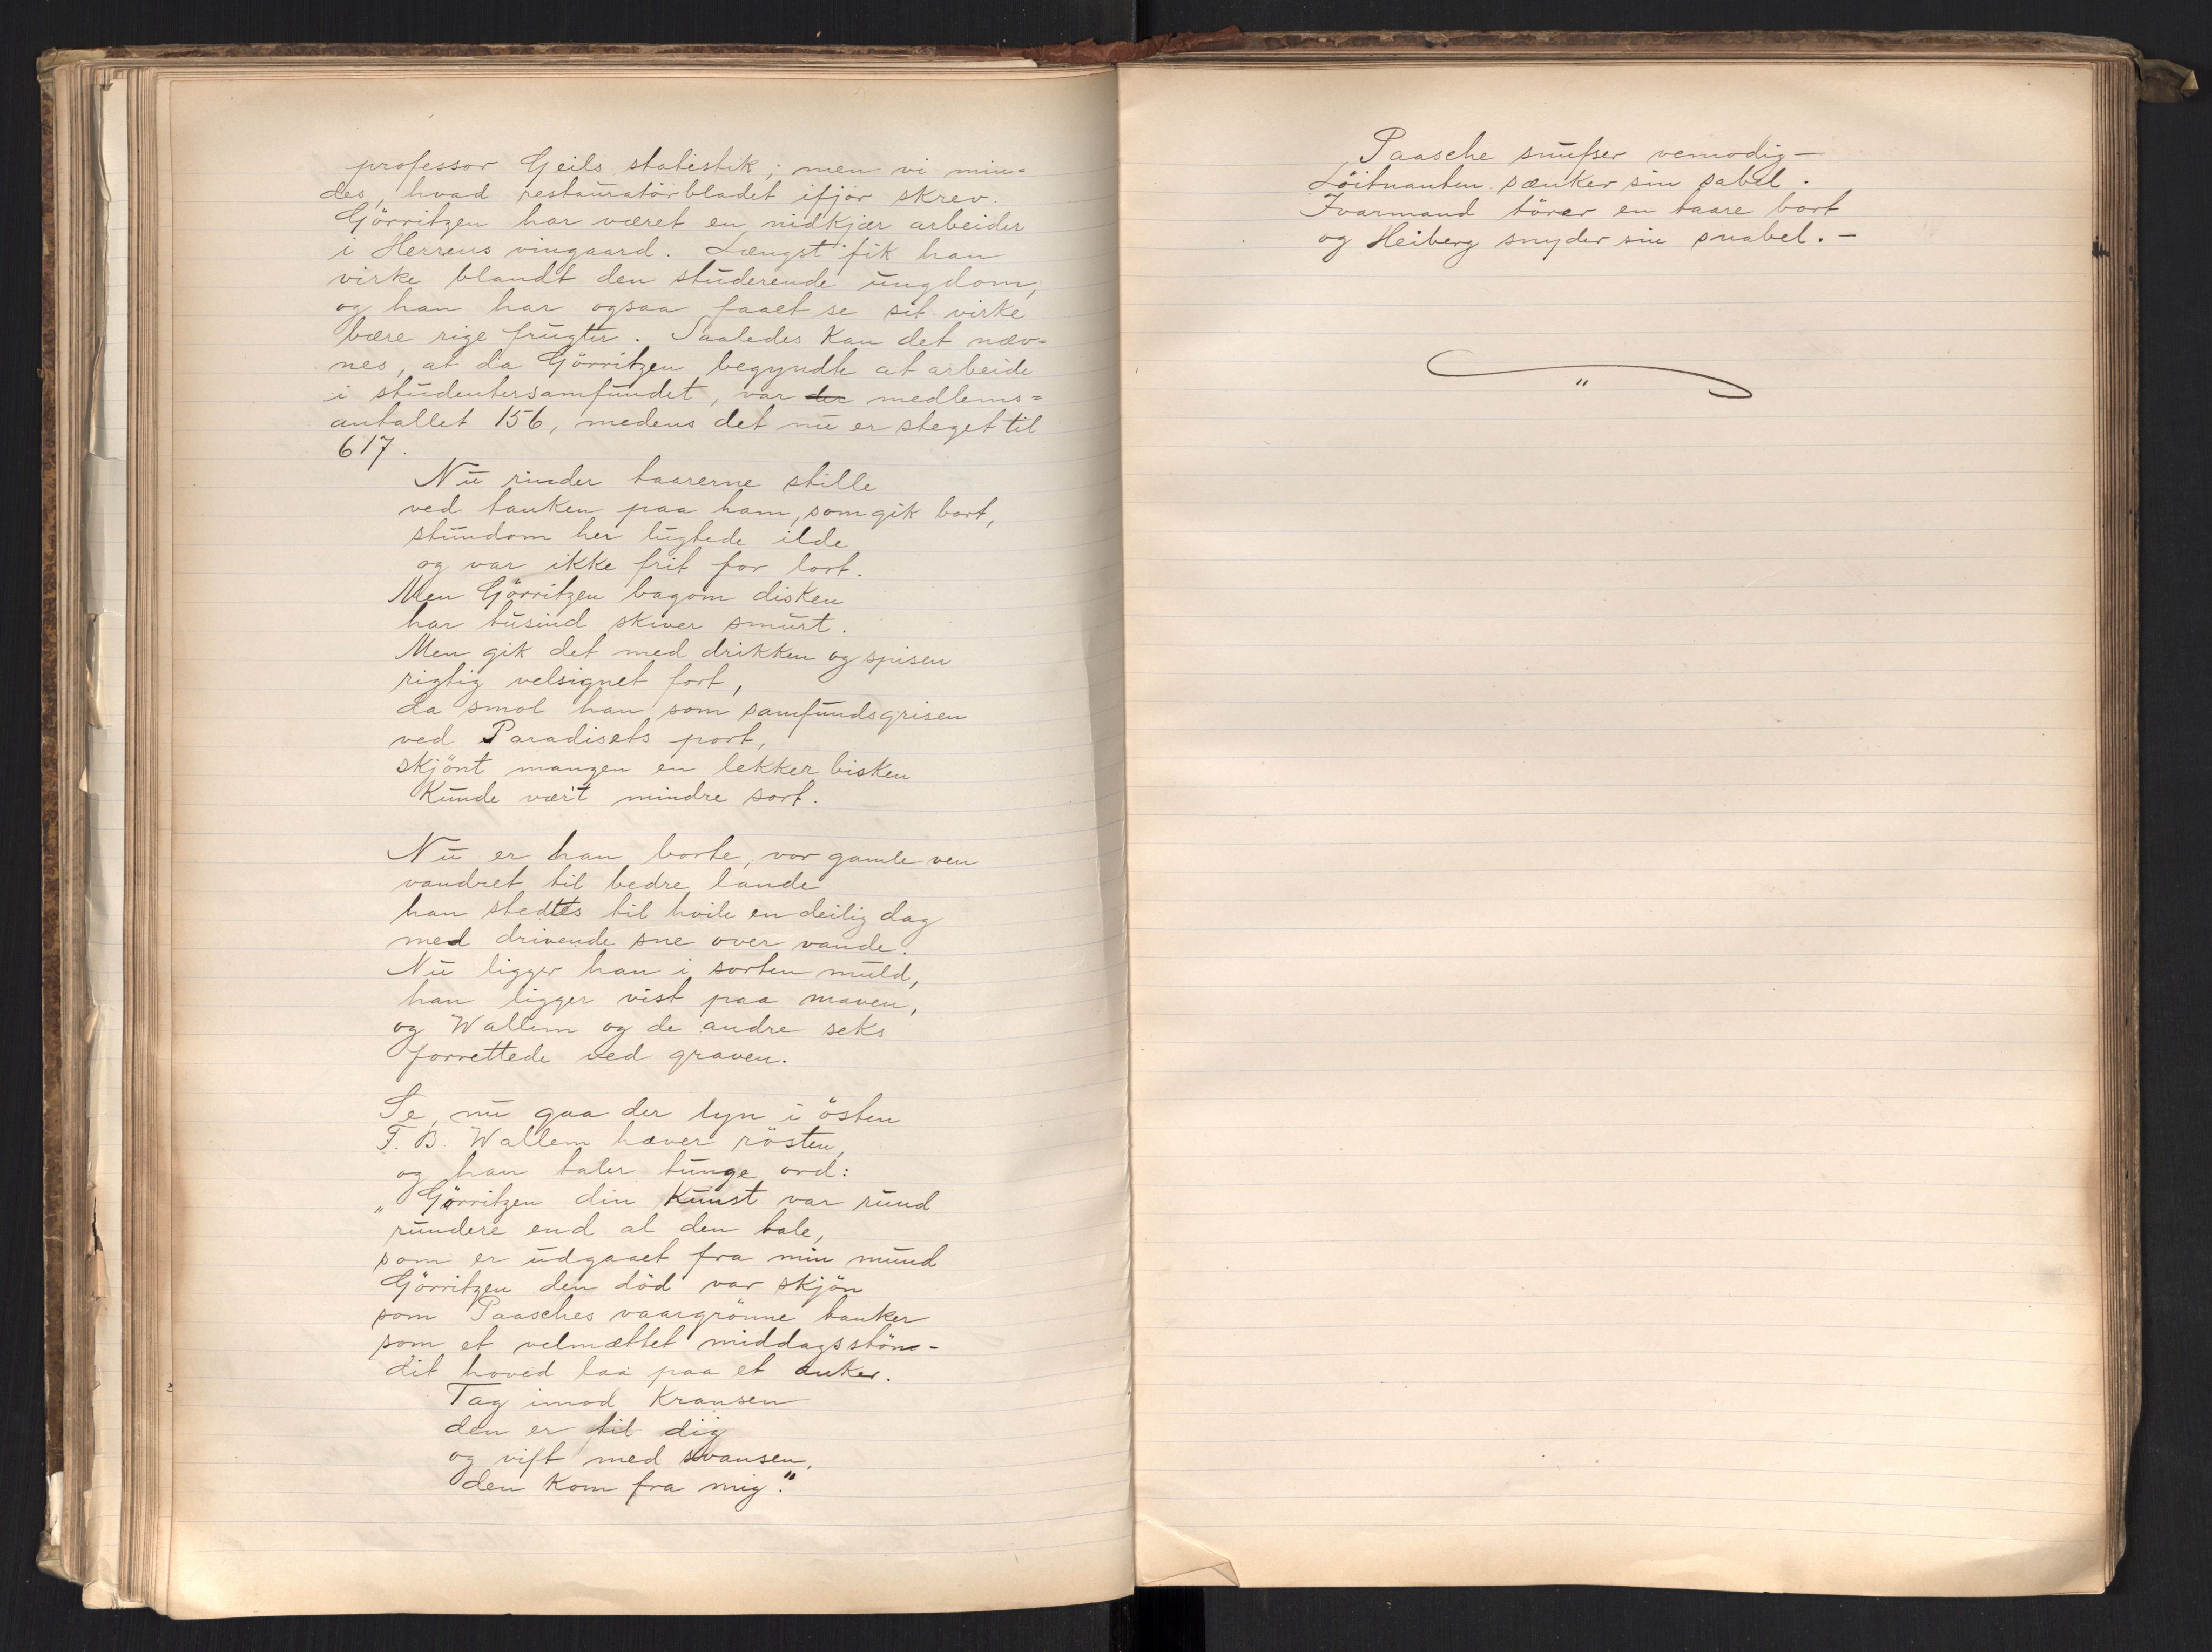 professor Geils statistik; men vi min=
des, hvad restauratörbladet ifjor skrev.
Görritzen har været en nidkjær arbeider
i Herrens vingaard. Længst fik han
virke blandt den studerende ungdom,
og han har ogsaa faaet se sit virke
bære rige frugter. Saaledes kan det næv=
nes, at da Görritzen begyndte at arbeide
i studentersamfundet, var der medlems=
antallet 156, medens det nu er steget til
617.
Nu rinder taarerne stille
ved tanken paa ham, som gik bort,
stundom her lugtede ilde
og var ikke frit for lort.
Men Görritzen bagom disken
har tusind skiver smurt.
Men gik det med drikken og spisen
rigtig velsignet fort,
da smol han som samfundsgrisen
ved Paradisets port,
skjönt mangen en lekker bisken
Kunde vær't mindre sort.
Nu er han borte, vor gamle ven
vandret til bedre lande
han stedtes til hvile en deilig dag
med drivende sne over vande.
Nu ligger han i sorten muld,
han ligger vist paa maven,
og Wallem og de andre seks
forrettede ved graven.
Se, nu gaa der lyn i östen
F. B. Wallem hæver rösten,
og han taler tunge ord:
„Görritzen din Kunst var rund
rundere end al den tale,
som er udgaaet fra min mund
Görritzen din död var skjön
som Paasches vaargrönne tanker
som et velmættet middagsstön-
dit hoved laa paa et anker.
Tag imod Kransen
den er til dig
og vift med svansen,
den kom fra mig."
Paasche snufser vemodig-
Löitnanten sænker sin sabel.
Ivarmand törer en taare bort
og Heiberg snyder sin snabel.-
"